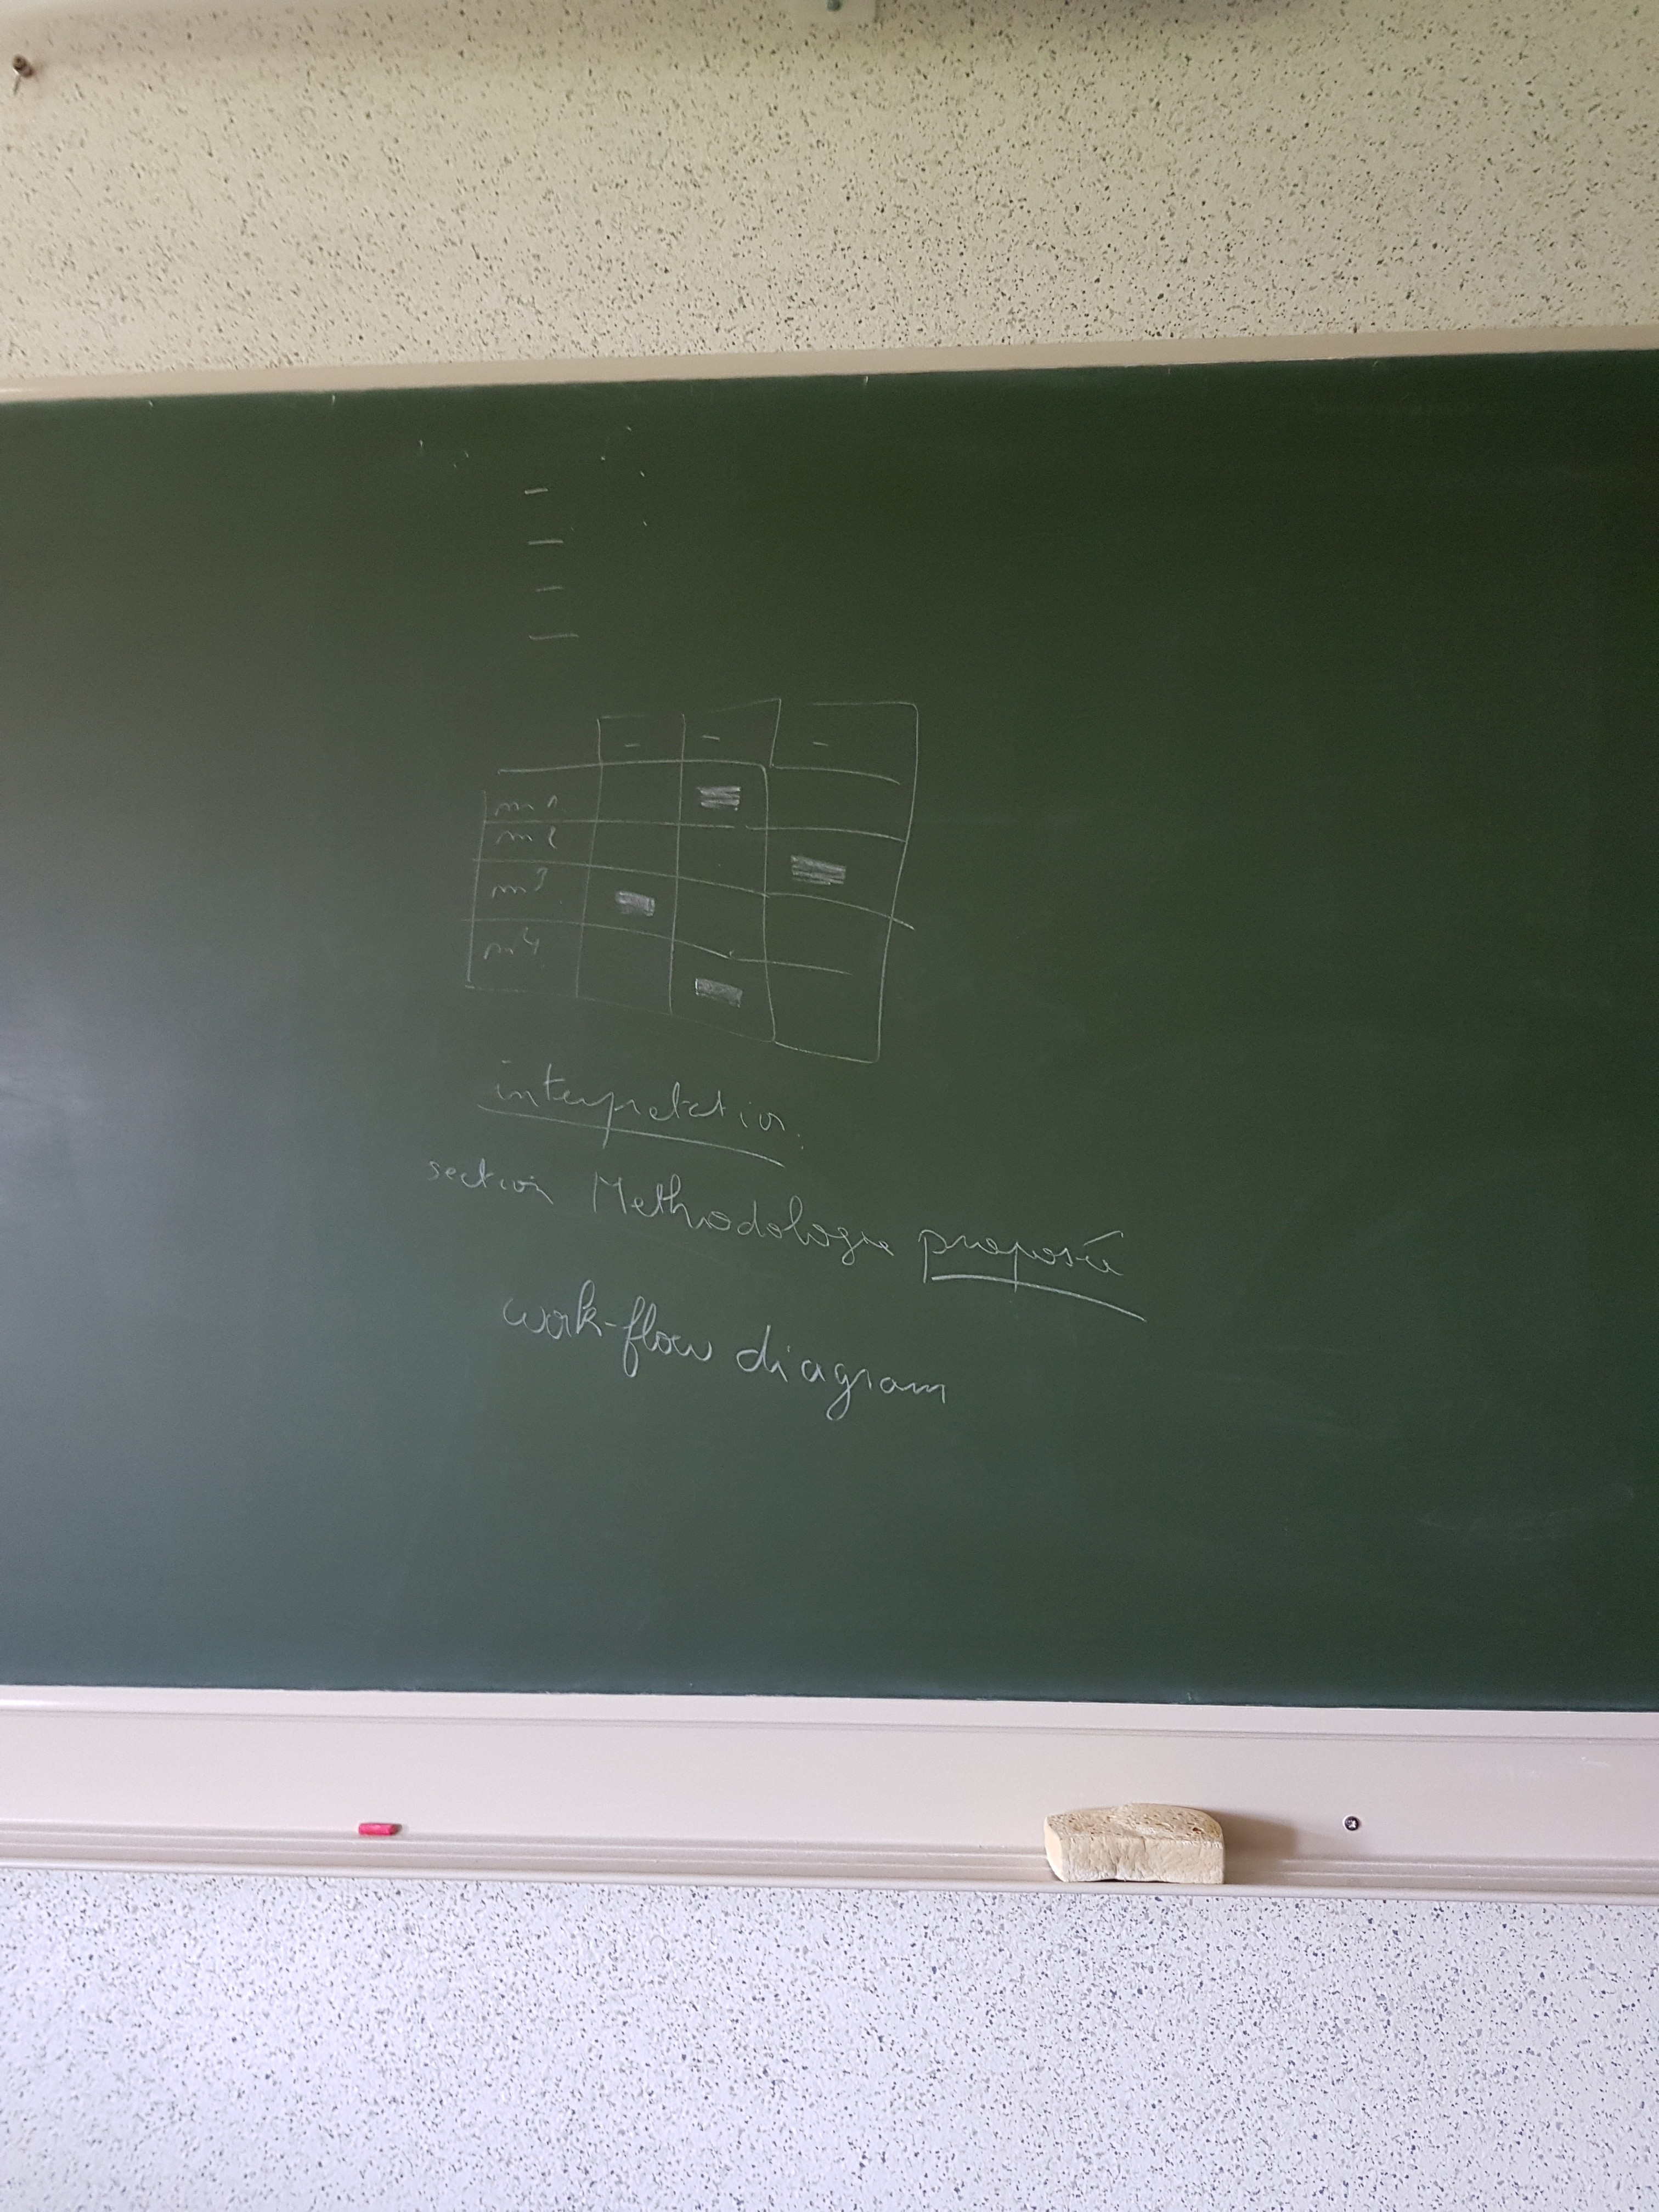 m1
m2
m3
m4
interpretation
section Methodologie proposée
work-flow diagram